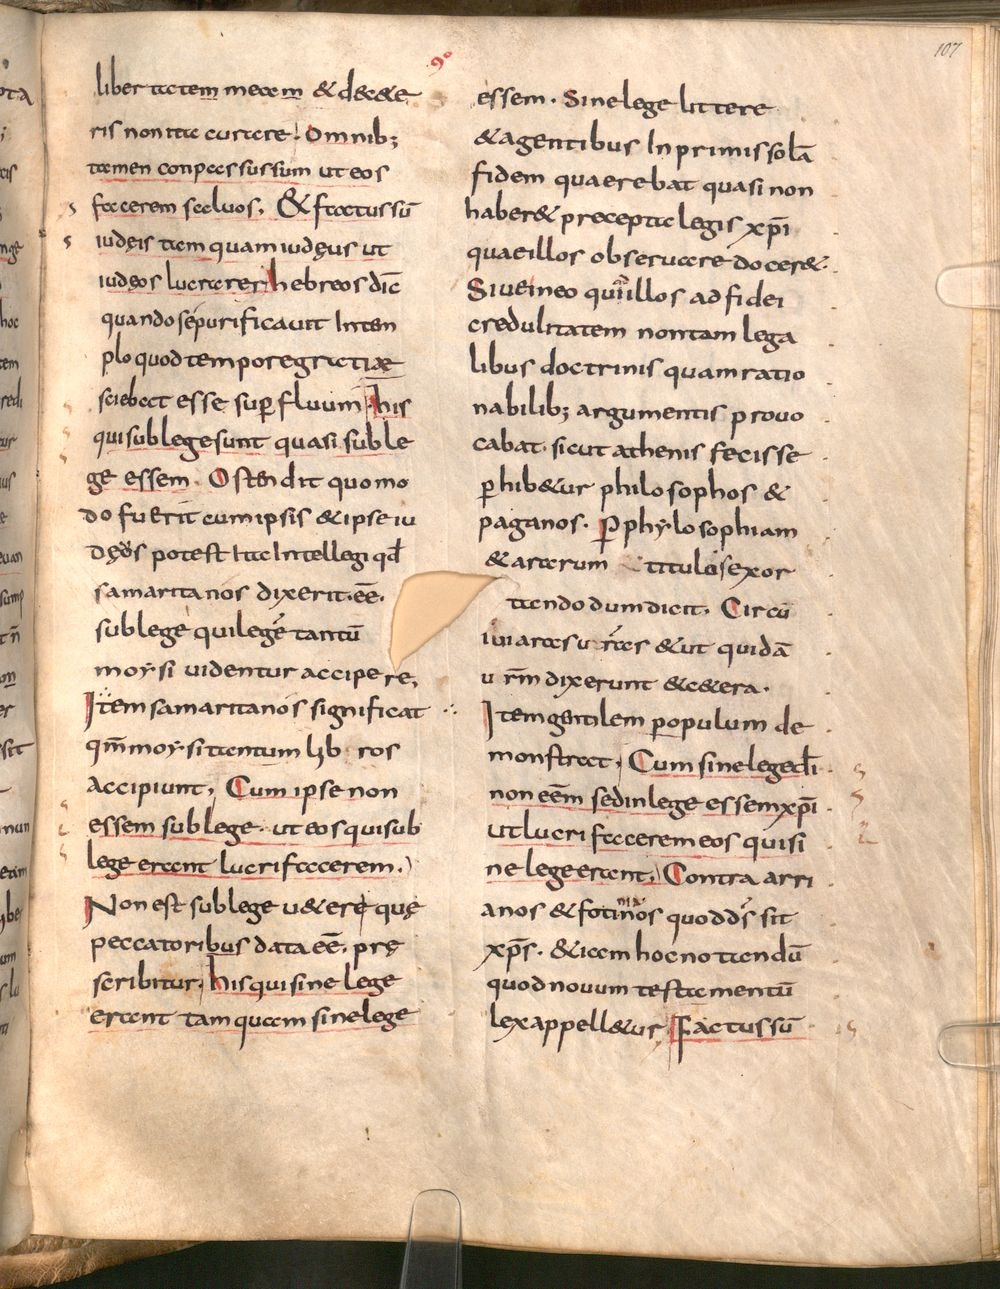 107
libertatem meam & d&&e
ris non tac curare. Omnib;
tamen conpessus sum ut eos
facerem saluos. & factus sū
iudęis tamquam iudęus ut
iudęos lucrarer hebreos dic̄
quando se purificauit In tem
plo quod tempore gratiae
sciebat esse suꝑfluum. his
qui sub lege sunt quasi sub le
ge essem. Ostendit quomo
do fuerit cum ipsis & ipse iu
dęos potest Ita Intellegi qd̄
samaritanos dixerit. eē.
sub lege qui legē tantū
moysi uidentur accipere,
Item samaritanos significat
qm̄ moysi tantum ros
Accipiunt, Cum ipse non
essem sub lege. ut eos qui sub
lege erant lucrifacerem.
Non est sub lege u&erę quę
peccatoribus data eē. prę
scribitur. his qui sine lege
erant tamquam sine lege
essem. Sine lege littere
& agentibus In primis solā
fidem quaerebat quasi non
haber& precepta legis xp̄i
quae illos obseruare docer&.
Siue in eo qui illos ad fidei
credulitatem non tam lega
libus doctrinis quam ratio
nabilib; argumentis prouo
cabat. sicut athenis fecisse
ꝑhib&ur philosophos &
paganos. P phylosophiam
& ararum titulos exor
tiendo dum dicit. Circū
iui aras uras & ut quidā
urm̄ dixerunt & c&era.
Item gentilem populum de
monstrat, Cum sine lege dī
non eēm sed in lege essem xp̄i
ut lucri facerem eos qui si
ne lege erant. Contra arri
anos & fotinianos quod ds̄ sit
xp̄s. & iam hoc notandū
quod nouum testamentū
lex appell&ur. Factus sū